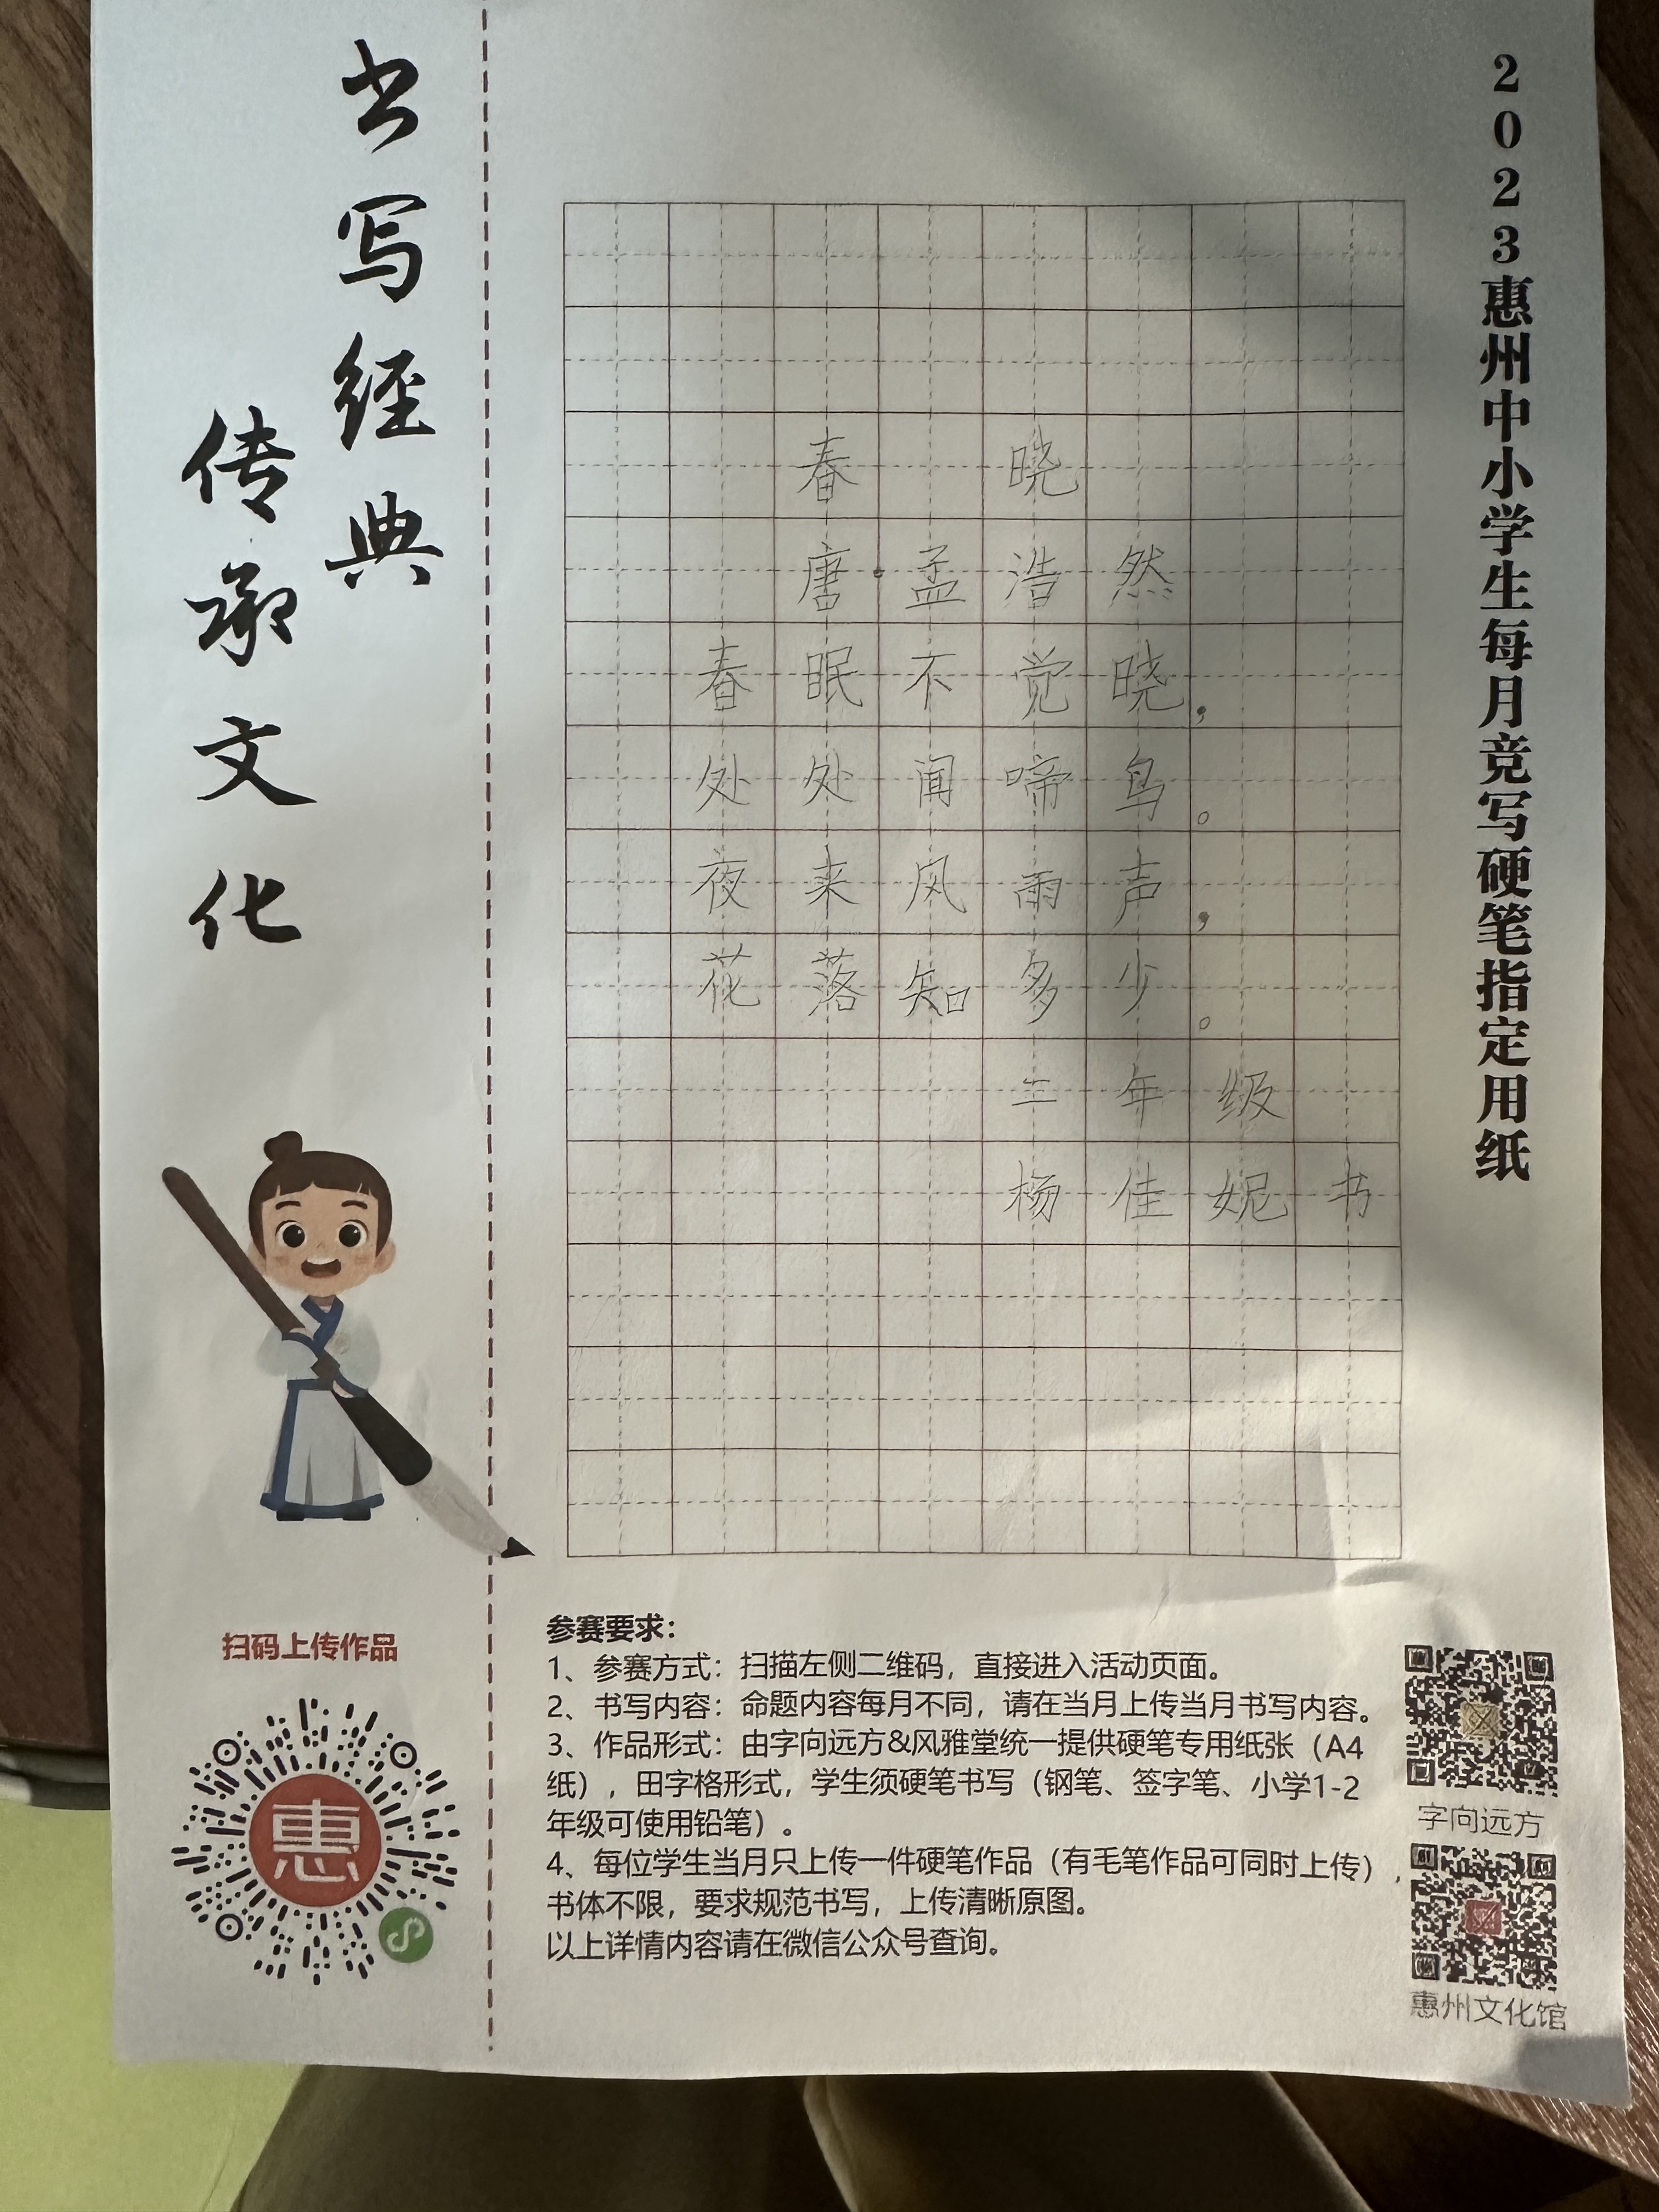 2023惠州中小学生每月竞写硬笔指定用纸
书写经典
传承文化
春晓
唐·孟浩然
春眠不觉晓，
处处闻啼鸟。
夜来风雨声，
花落知多少。
二年级
杨佳妮书
扫码上传作品
惠
参赛要求：
1、参赛方式：扫描左侧二维码，直接进入活动页面。
2、书写内容：命题内容每月不同，请在当月上传当月书写内容。
3、作品形式：由字向远方&风雅堂统一提供硬笔专用纸张（A4
纸），田字格形式，学生须硬笔书写（钢笔、签字笔、小学1-2
年级可使用铅笔）。
4、每位学生当月只上传一件硬笔作品（有毛笔作品可同时上传），
书体不限，要求规范书写，上传清晰原图。
以上详情内容请在微信公众号查询。
字向远方
惠州文化馆